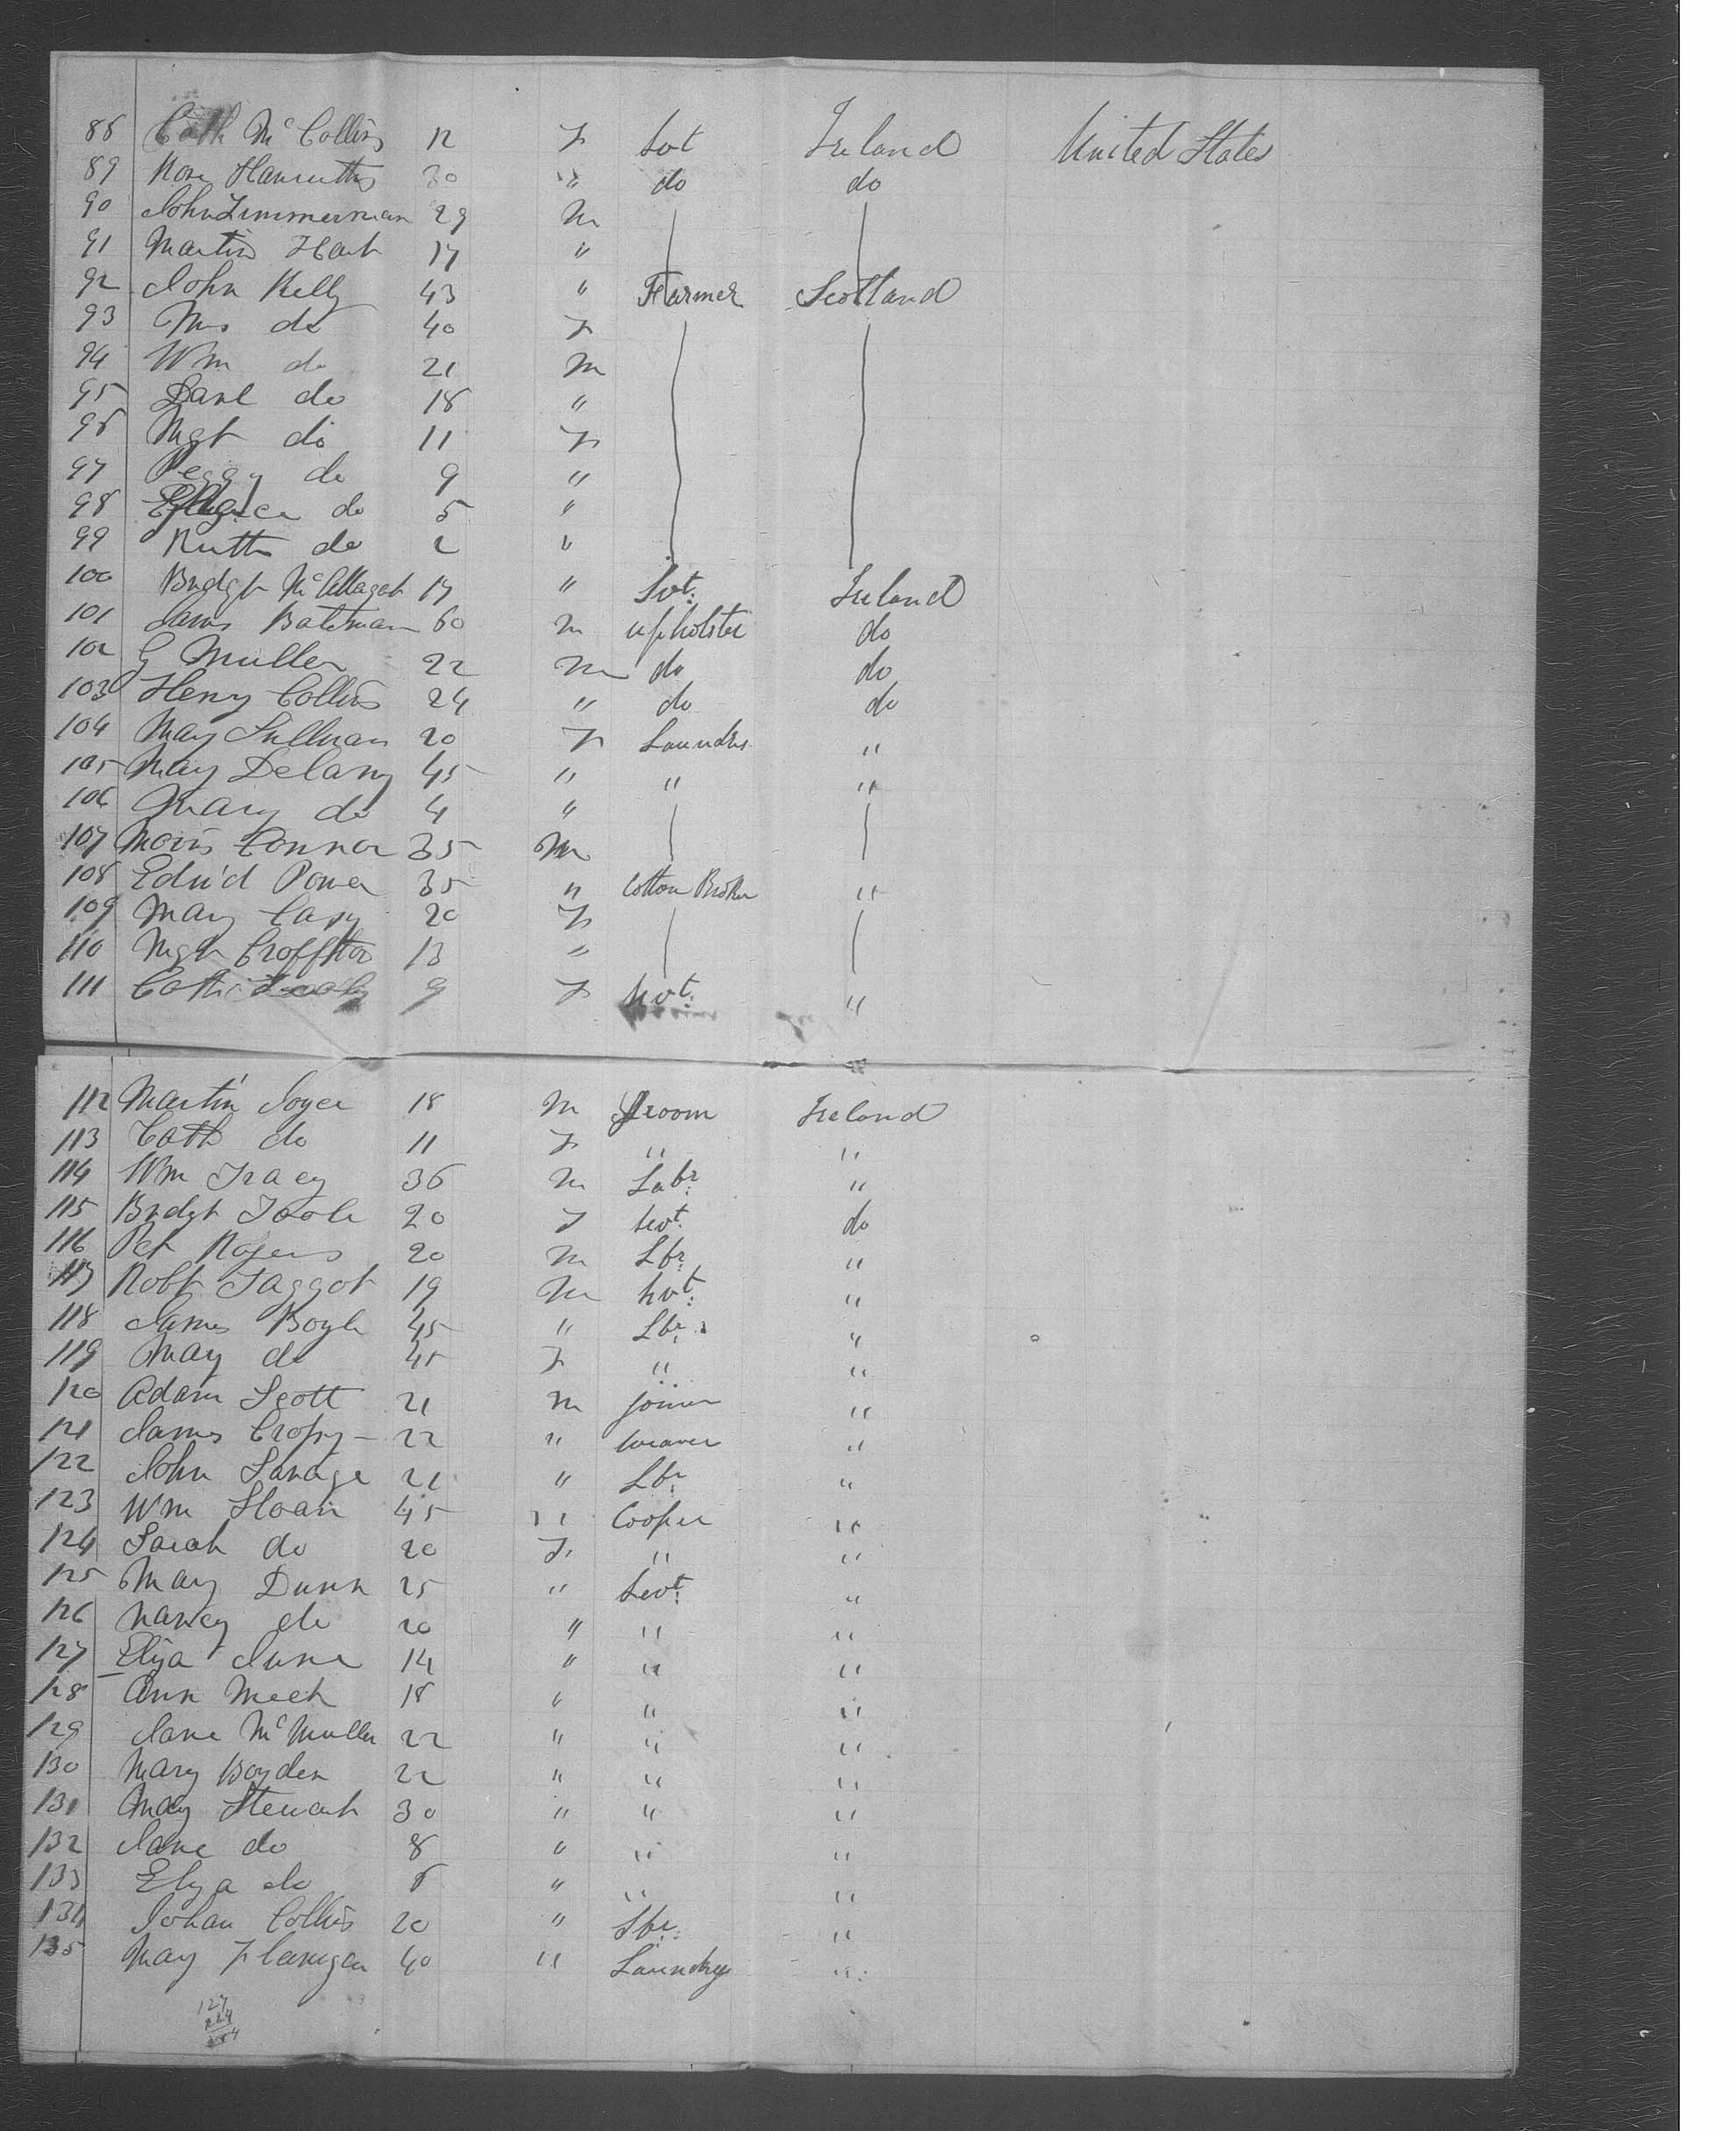 88 Cath McCollins 12 F Svt Ireland United States
89 Rose 30 " do do
90 John Zimmerman 29 M
91 Martin Hart 17 "
92 John Kelly 43 " Farmer Scotland
93 Mrs do 40 F
94 Wm do 21 M
95 Danl do 18 "
96 Mgt do 11 F
97 Peggy do 9 "
98 do 5 "
99 Ruth do 2 "
100 Bridgt 17 " Svt. Ireland
101 James Bateman 60 M upholster do
102 G Muller 22 M do do
103 Henry Collins 24 " do do
104 Mary Sullivan 20 F Laundrs "
105 Mary Delany 45 " " "
106 Mary do 4 "
107 Moris Connor 35 M
108 Edw'd Power 35 " Cotton Broker "
109 Mary 20 F
110 Mgt Croffton 13 "
111 Cath 9 F Svt. "
112 Martin Joyce 18 M Groom Ireland
113 Cath do 11 F " "
114 Wm Tracy 36 M Labr. "
115 Bridgt Toole 20 F Sevt. do
116 Pat Rogers 20 M Lbr. "
117 Robt Taggot 19 M Svt. "
118 James Boyle 45 " Lbr. "
119 Mary do 45 F " "
120 Adam Scott 21 M joiner "
121 James 22 " weaver "
122 John Savage 21 " Lbr. "
123 Wm Sloan 45 " Cooper "
124 Sarah do 20 F " "
125 Mary Dunn 25 " Sevt. "
126 Nancy do 20 " " "
127 Eliza 14 " " "
128 Ann Meek 18 " " "
129 Jane McMullen 22 " " "
130 Mary Boyden 22 " " "
131 Mary Stewart 30 " " "
132 Jane do 8 " " "
133 Eliza do 6 " " "
134 Johan Collins 20 " Lbr. "
135 Mary Flanigan 40 " Laundrys "
127